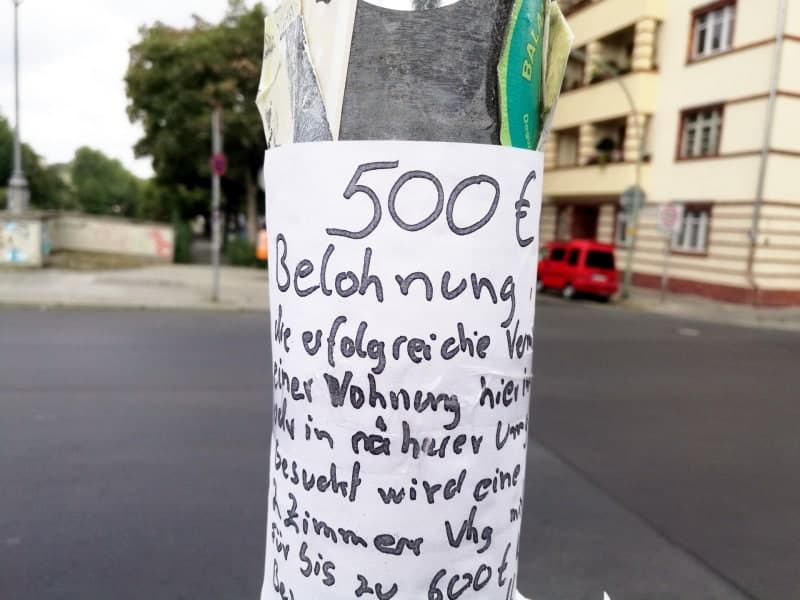 BAL
500 €
Belohnung,
die erfolgreiche Verm
einer Wohnung hier in
oder in näherer Umg
Gesucht wird eine
2 Zimmer Whg mi
für bis zu 600 €
Be